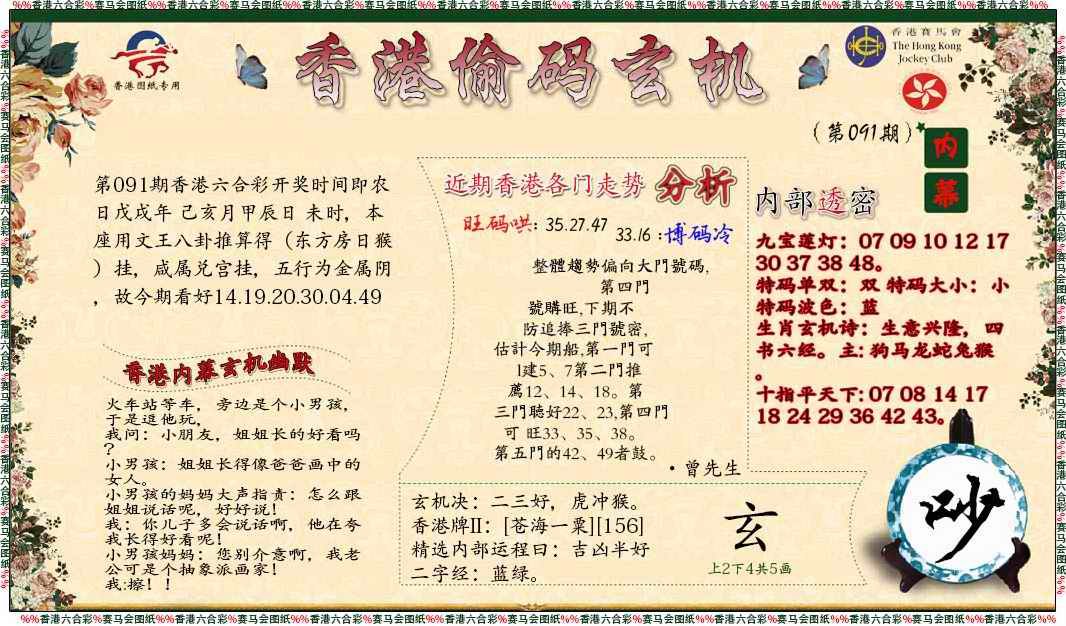 %%香港六合彩%赛马会图纸%%香港六合彩%赛马会图纸%%香港六合彩%赛马会图纸%%香港六合彩%赛马会图纸%%香港六合彩%赛马会图纸%%香港六合彩%%
香港图纸专用
香港偷码玄机
香港賽馬會
The Hong Kong
Jockey Club
(第091期)
内
幕
第091期香港六合彩开奖时间即农
日戊戌年 己亥月甲辰日 未时，本
座用文王八卦推算得（东方房日猴
）挂，咸属兑宫挂，五行为金属阴
，故今期看好14.19.20.30.04.49
香港内幕玄机幽默
火车站等车，旁边是个小男孩，
于是逗他玩，
我问：小朋友，姐姐长的好看吗
？
小男孩：姐姐长得像爸爸画中的
女人。
小男孩的妈妈大声指责：怎么跟
姐姐说话呢，好好说！
我：你儿子多会说话啊，他在夸
我长得好看呢！
小男孩妈妈：您别介意啊，我老
公可是个抽象派画家！
我:擦！！
近期香港各门走势 分析
旺码哄: 35.27.47
33.16 :博码冷
整體趨勢偏向大門號碼,
第四門
號購旺,下期不
防追捧三門號密,
估計今期船,第一門可
1建5、7第二門推
薦12、14、18。第
三門聴好22、23,第四門
可 旺33、35、38。
第五門的42、49者鼓。
·曾先生
玄机决：二三好，虎冲猴。
香港牌II：[苍海一粟][156]
精选内部运程曰：吉凶半好
二字经：蓝绿。
玄
上2下4共5画
内部透密
九宝莲灯：07 09 10 12 17
30 37 38 48。
特码单双：双 特码大小：小
特码波色：蓝
生肖玄机诗：生意兴隆，四
书六经。主: 狗马龙蛇兔猴
。
十指平天下: 07 08 14 17
18 24 29 36 42 43。
%%香港六合彩%赛马会图纸%%香港六合彩%赛马会图纸%%香港六合彩%赛马会图纸%%香港六合彩%赛马会图纸%%香港六合彩%赛马会图纸%%香港六合彩%%